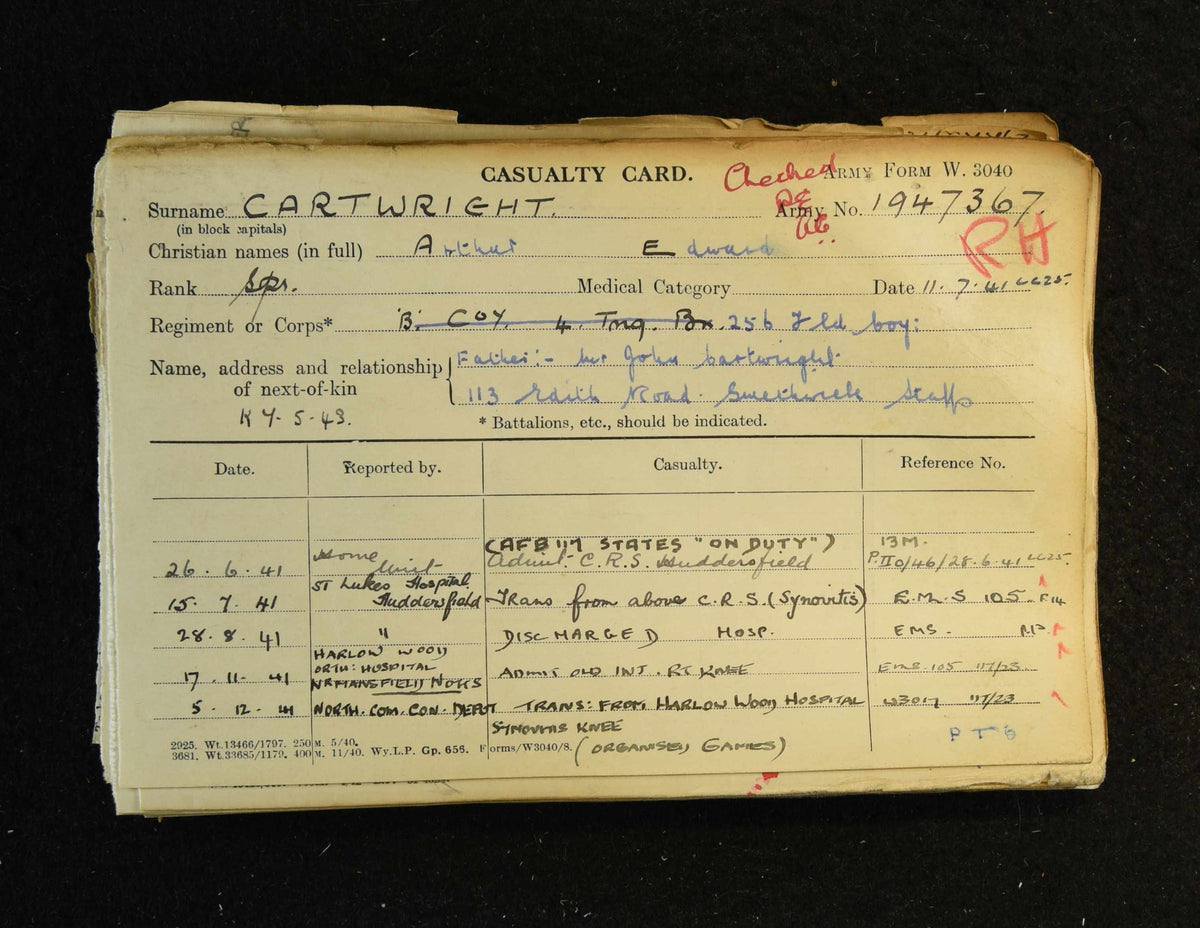 CASUALTY CARD. Checked ARMY FORM W. 3040
Surname CARTWRIGHT. Army No. 1947367.
(in block capitals)
RH
Christian names (in full) Arthur Edward
Rank Spr. Medical Category Date 11. 7. 41
Regiment or Corps* 'B' COY. 4. Tng. Bn. 256 Fld Coy:
Name, address and relationship of next-of-kin
Father:- Mr John Cartwright
113 Edith Road. Smethwick Staffs
7-5-43.
* Battalions, etc., should be indicated.
Date. Reported by. Casualty. Reference No.
(AFB 117 STATES "ON DUTY") 13M.
26. 6. 41 Home Unit Admit. C.R.S. Huddersfield P.II0/46/28.6.41
15. 7. 41 ST Lukes Hospital Huddersfield Trans from above C.R.S. (Synovitis) E.M.S 105
28. 8. 41 " DISCHARGED HOSP. EMS.
17. 11. 41 HARLOW WOOD ORTH: HOSPITAL NR MANSFIELD NOTTS ADMIT OLD INJ. RT KNEE EMS 105 117/23
5. 12. 41 NORTH. COM. CON. DEPOT TRANS: FROM HARLOW WOOD HOSPITAL W3017 117/23
SYNOVITIS KNEE
(ORGANISED GAMES)
2925. Wt.13466/1797. 250M. 5/40.
3681. Wt.33685/1179. 400M. 11/40. Wy.L.P. Gp. 656. Forms/W3040/8.